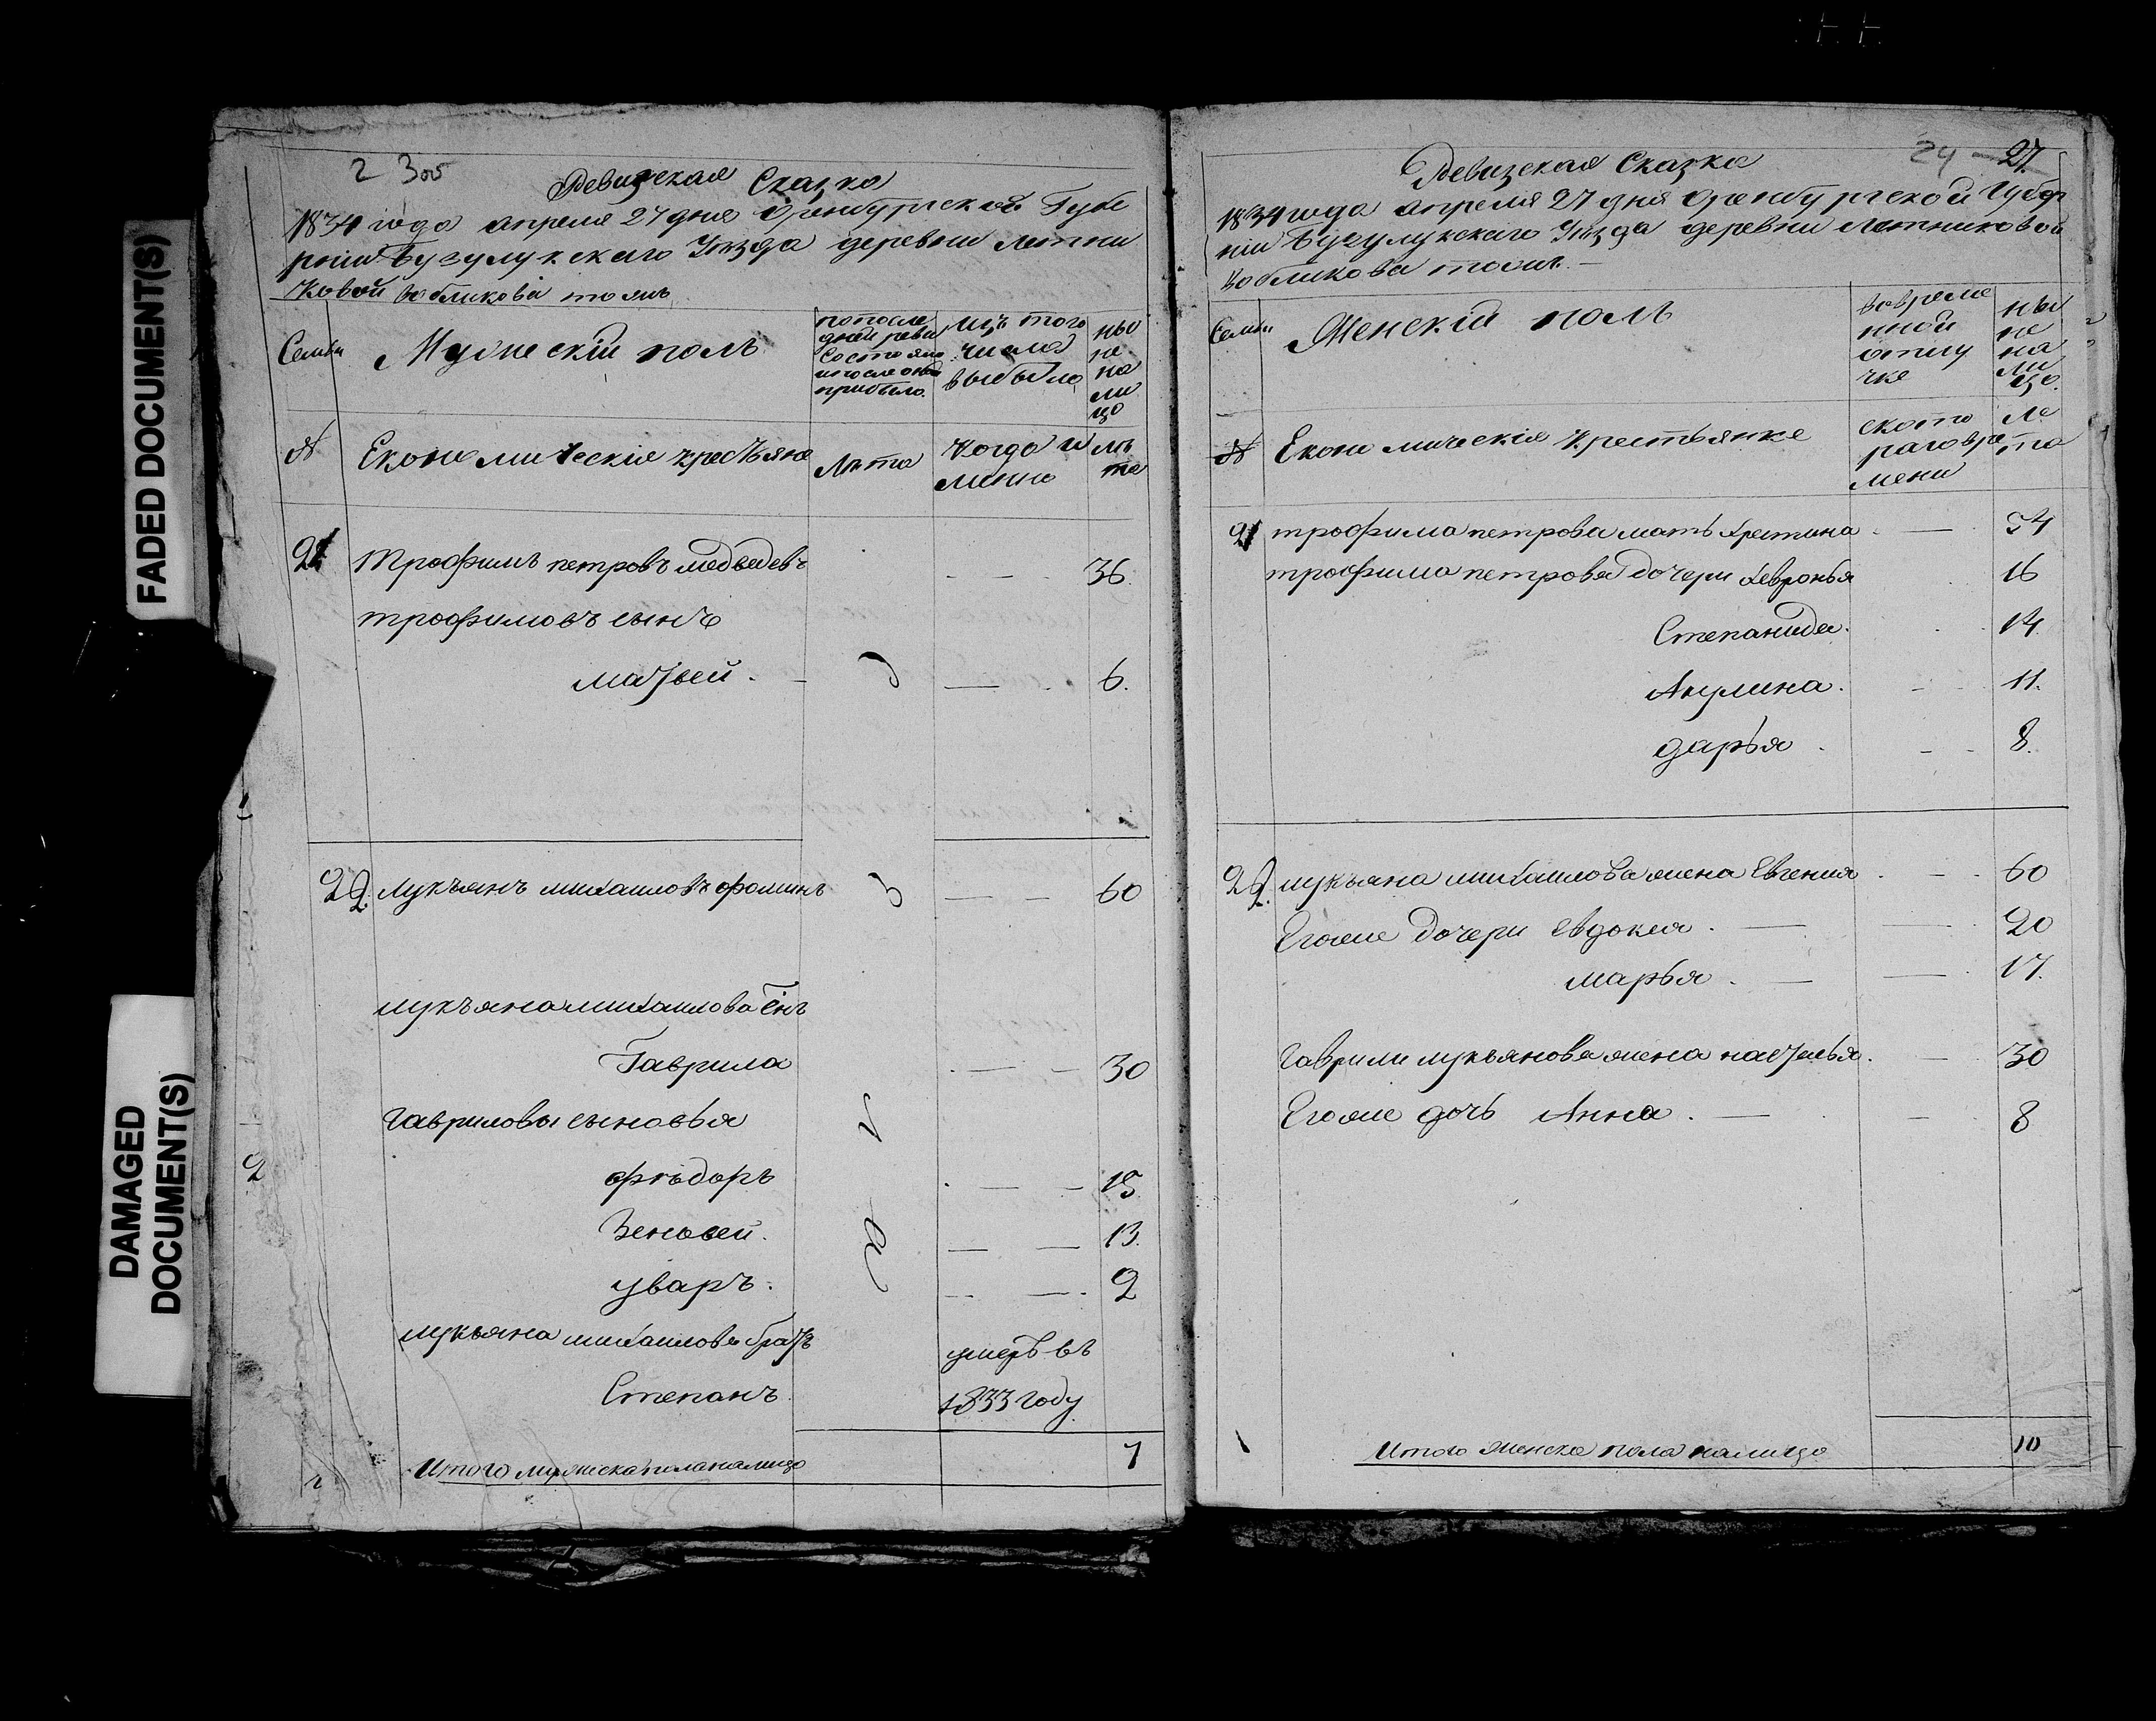 FADED DOCUMENT(S)
DAMAGED DOCUMENT(S)
2 Зоб
Ревизская Сказка
1834 года апреля 27 дня Оренбургской Губе
рнии Бузулукского Уѣзда деревни летни
ковой Кобликова тожъ
Семьи
Мужескій полъ
попосле дней реви Состояло ипосле оной прибыло.
Изъ того числа выбыло
ны не на ли цо
№
Економическіе кресьяне
Лѣта
Когда и менно
лѣ та
21 Трофимъ петровъ медведевъ 36.
трофимовъ сынъ
матвей. 6.
22. Лукъянъ михаиловъ фоминъ 60
лукъяна михаилова снъ
Гаврила 30
гавриловы сыновья
фѣдоръ 15
Зеновей. 13.
уваръ. 2
лукьяна михаилова братъ умеръ въ
Степанъ. 1833 году.
Итого мужеска пола налицо 7
2
24 - 27.
Ревизская Сказка
1834 года апреля 27 дня Оренбургской Губер
нии Бузулукскаго Уѣзда деревни летниковой
Кобликова тожъ. —
Семьи
Женскій полъ
вовреме нной отлу чке
ны не на ли цо.
№
Економическія крестьянке
ското раго вре мени
ле та
21 трофима петрова мать Хрестина. 74
трофима петрова дочери Хевронья 16
Степанида. 14.
Акулина. 11.
дарья. 8.
22. лукъяна михаилова жена Евгения. 60
Егоже дочери Евдокея. 20
марья. 17.
Гаврилы лукьянова жена наталья. 30
Егоже дочь Анна. 8
Итого женска пола налицо 10